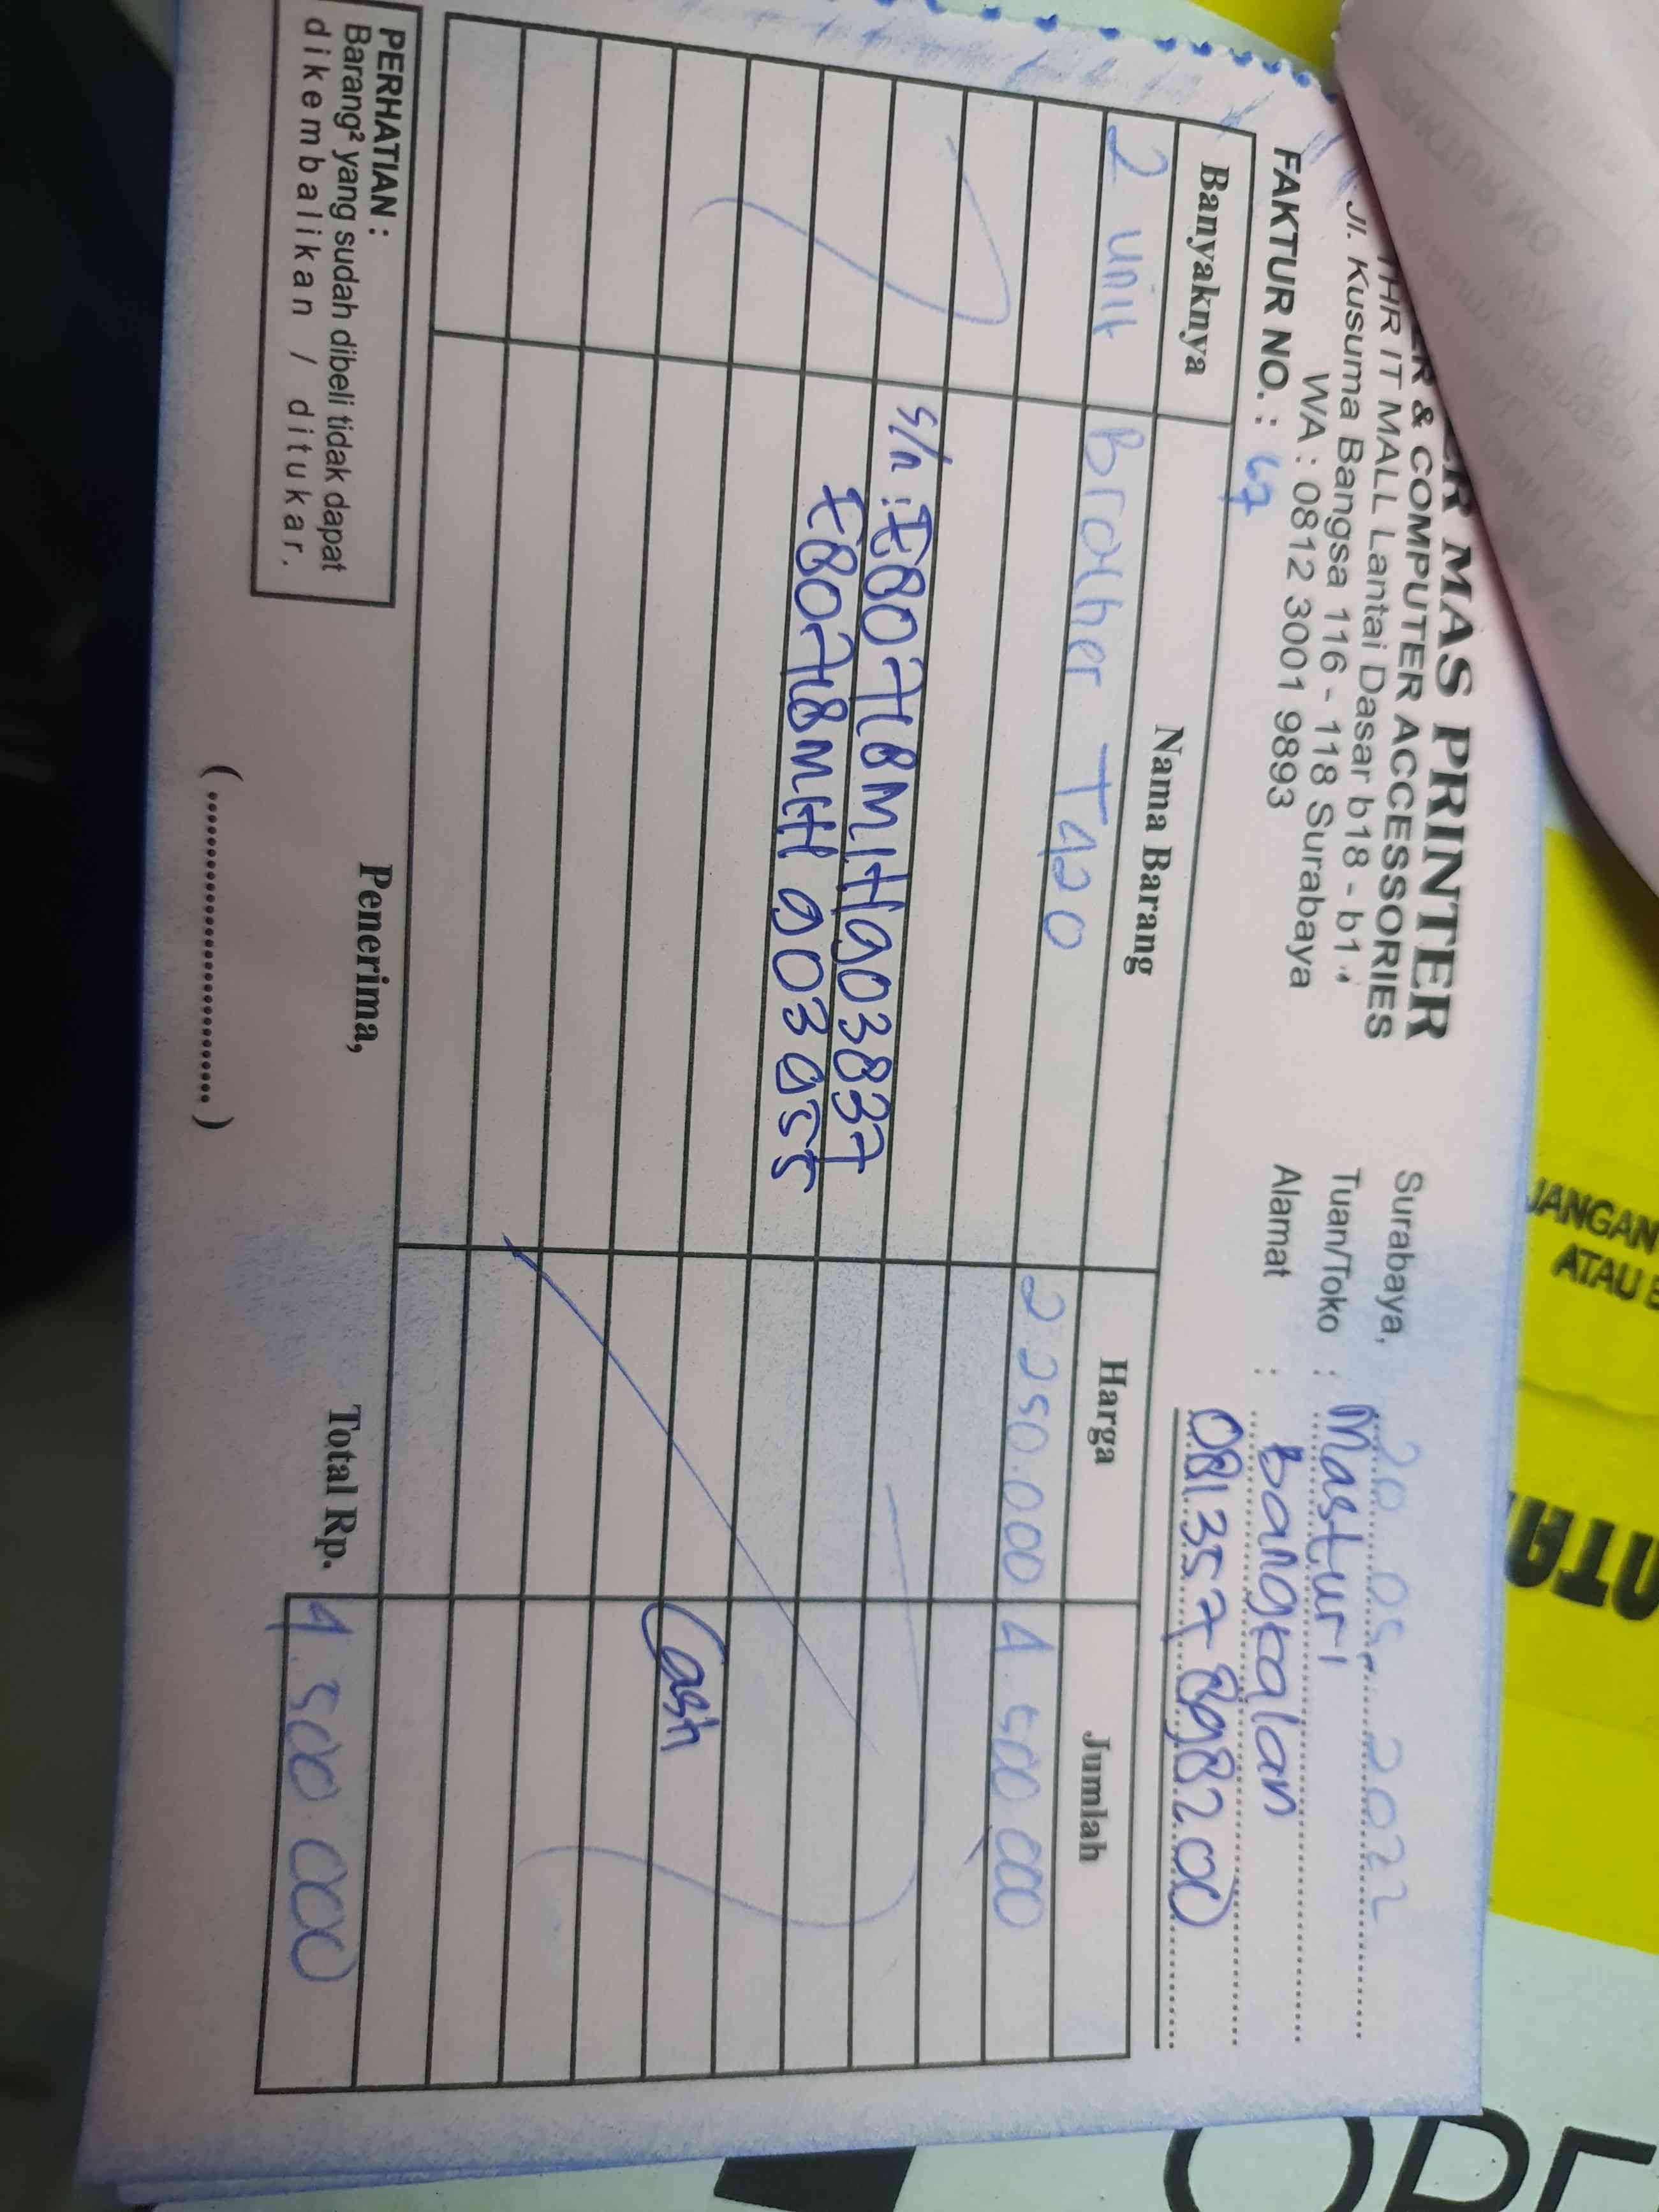 MAS PRINTER
& COMPUTER ACCESSORIES
IT MALL Lantai Dasar b18 - b1
Jl. Kusuma Bangsa 116 - 118 Surabaya
WA : 0812 3001 9893
FAKTUR NO. : 67
Surabaya, 20 05 2022
Tuan/Toko : Masturi
Alamat : bangkalan
081357898200
Banyaknya Nama Barang Harga Jumlah
2 unit Brother T420 2250.000 4.500.000
s/n :
Cash
Total Rp. 4.500.000
PERHATIAN :
Barang² yang sudah dibeli tidak dapat
dikembalikan / ditukar.
Penerima,
(..............................)
JANGAN
ATAU